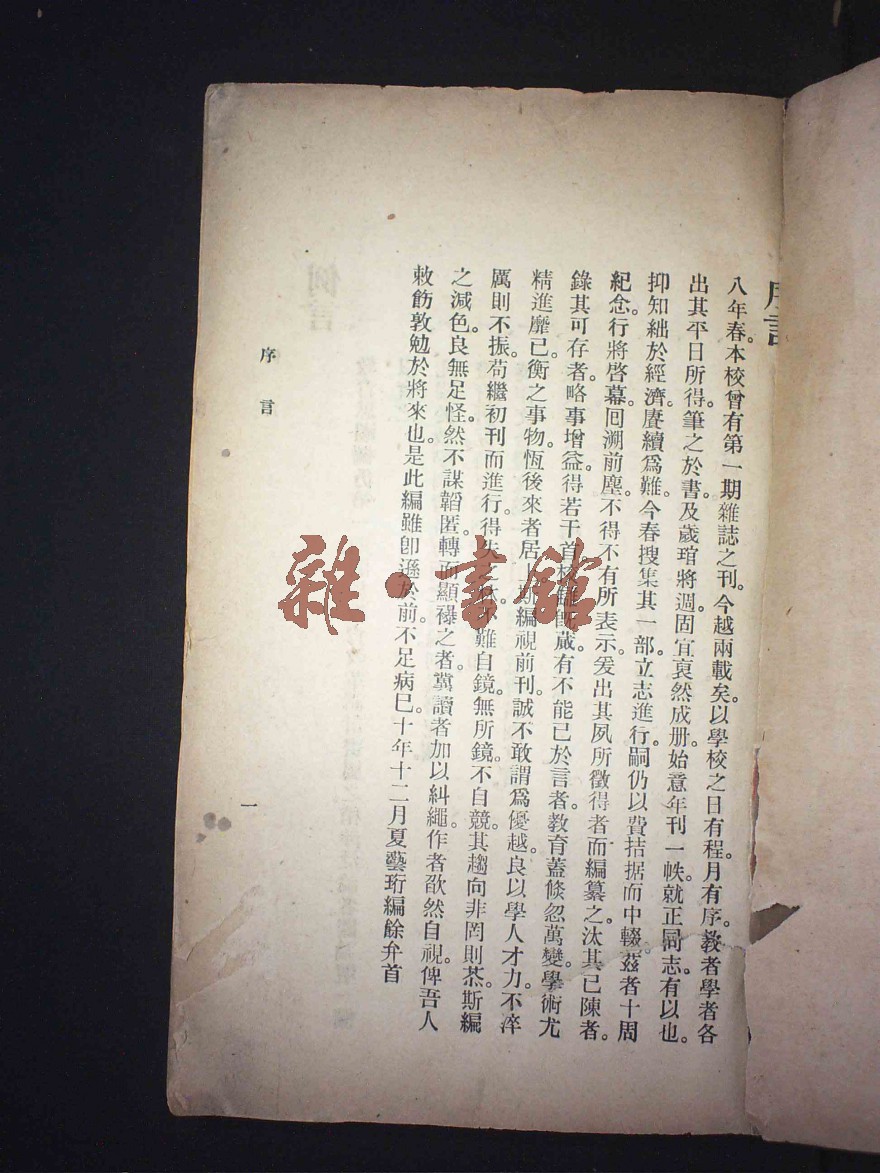 序言
八年春。本校曾有第一期雜誌之刊。今越兩載矣。以學校之日有程。月有序。教者學者各
出其平日所得。筆之於書。及歲琯將週。固宜裒然成册。始意年刊一帙。就正同志。有以也。
抑知絀於經濟。賡續爲難。今春搜集其一部。立志進行。嗣仍以費拮据而中輟。茲者十周
紀念。行將啓幕。囘溯前塵。不得不有所表示。爰出其夙所徵得者而編纂之。汰其已陳者。
錄其可存者。略事增益。得若干首。蕆有不能已於言者。教育蓋倏忽萬變。學術尤
精進靡已。衡之事物。恆後來者居上。斯編視前刊。誠不敢謂爲優越。良以學人才力。不淬
厲則不振。苟繼初刊而進行。得失之林。不難自鏡。無所鏡。不自競。其趨向非罔則苶。斯編
之減色。良無足怪。然不謀韜匿。轉而顯襮之者。冀讀者加以糾繩。作者欿然自視。俾吾人
敕飭敦勉於將來也。是此編雖卽遜於前。不足病已。十年十二月夏藝珩編餘弁首
序言
一
雜·書館